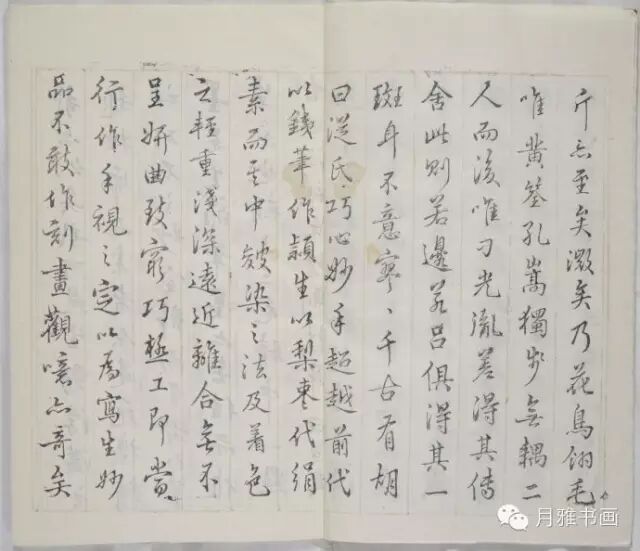 斤亦至矣微矣乃花鳥翎毛
唯黃筌孔嵩獨步無耦二
人而後唯刁光胤差得其傳
舍此則若邊若呂俱得其一
斑耳不意寥〻千古有胡
曰從氏巧心妙手超越前代
以鐵筆作穎生以梨棗代絹
素而其中皴染之法及着色
之輕重淺深遠近離合無不
呈妍曲致窮巧極工即當
行作手視之定以為寫生妙
品不敢作刻畫觀噫亦奇矣
月雅书画